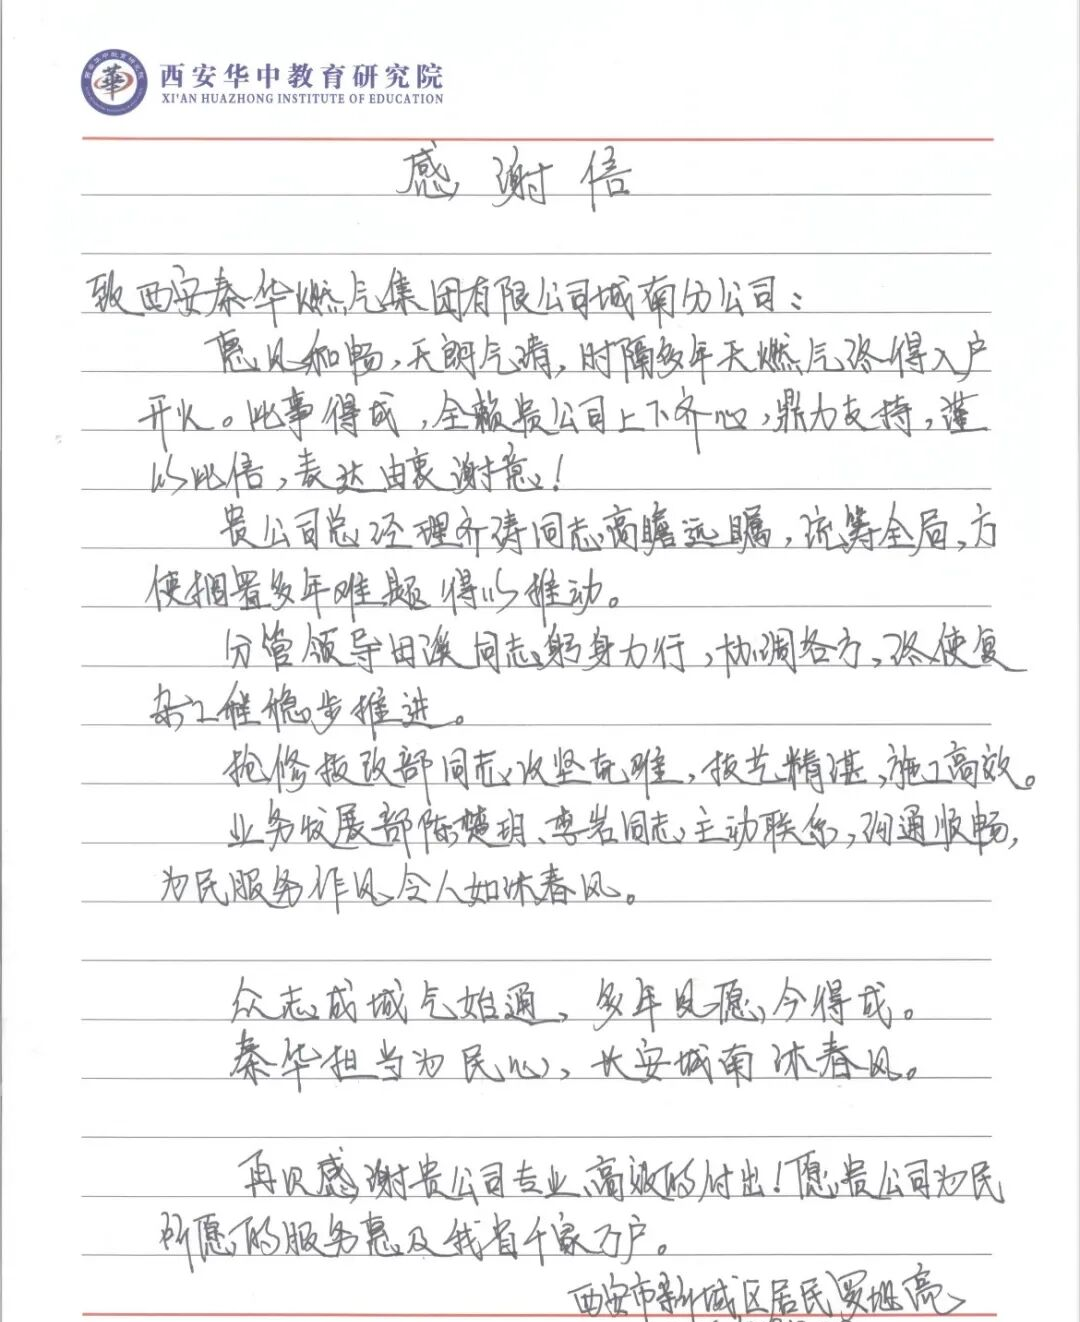 西安华中教育研究院
XI'AN HUAZHONG INSTITUTE OF EDUCATION
感谢信
致西安秦华燃气集团有限公司城南分公司：
惠风和畅，天朗气清，时隔多年天燃气终得入户
开火。此事得成，全赖贵公司上下齐心，鼎力支持，谨
以此信，表达由衷谢意！
贵公司总经理齐涛同志高瞻远瞩，统筹全局，方
使搁置多年难题得以推动。
分管领导田溪同志躬身力行，协调各方，终使复
杂工程稳步推进。
抢修技改部同志攻坚克难，技艺精湛，施工高效。
业务发展部陈楚玥、李岩同志主动联系，沟通顺畅，
为民服务作风令人如沐春风。
众志成城气始通，多年夙愿今得成。
秦华担当为民心，长安城南沐春风。
再次感谢贵公司专业高效的付出！愿贵公司为民
所愿的服务惠及我省千家万户。
西安市新城区居民罗旭亮